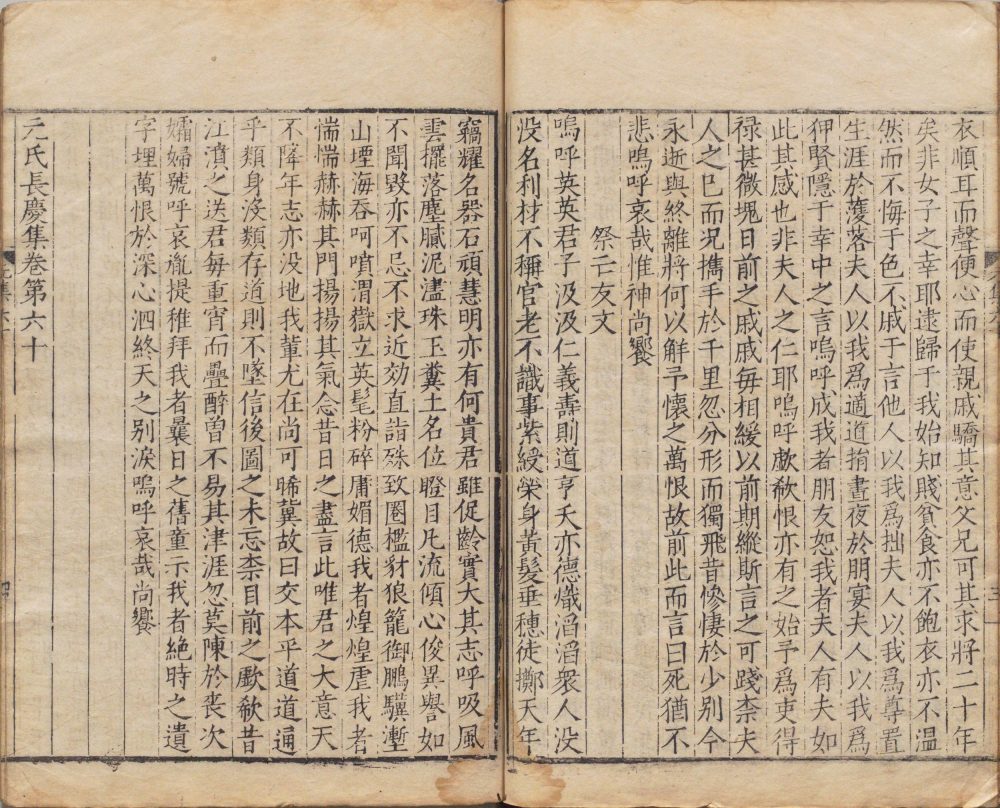 衣順耳而聲便心而使親戚驕其意父兄可其求將二十年
矣非女子之幸耶逮歸于我始知賤貧食亦不飽衣亦不溫
然而不悔于色不戚于言他人以我爲拙夫人以我爲尊置
生涯於濩落夫人以我爲適道捐晝夜於朋宴夫人以我爲
狎賢隱于幸中之言嗚呼成我者朋友恕我者夫人有夫如
此其感也非夫人之仁耶嗚呼歔欷恨亦有之始予爲吏得
禄甚微塊日前之戚戚毎相緩以前期縱斯言之可踐柰夫
人之巳而况攜手於千里忽分形而獨飛昔慘悽於少别今
永逝與終離將何以解予懷之萬恨故前此而言曰死猶不
悲嗚呼哀哉惟神尚饗
祭亡友文
嗚呼英英君子汲汲仁義壽則道亨夭亦德熾滔滔衆人没
没名利材不稱官老不識事紫綬榮身黃髮垂穗徒擲天年
竊耀名器石頑慧明亦有何貴君雖促齡實大其志呼吸風
雲擺落塵膩泥瀘珠玉糞土名位瞪目凡流傾心俊異譽如
不聞毀亦不忌不求近効直詣殊致圈檻豺狼籠御鵬驥塹
山堙海吞呵噴渭嶽立英髦粉碎庸媚德我者煌煌虐我者
惴惴赫赫其門揚揚其氣念昔日之盡言此唯君之大意天
不降年志亦没地我輩尤在尚可晞冀故曰交本乎道道通
乎類身没類存道則不墜信後圖之未忘柰目前之歔欷昔
江濆之送君毎重宵而疊醉曾不易其津涯忽莫陳於喪次
孀婦號呼哀胤提稚拜我者曩日之舊童示我者絕時之遺
字埋萬恨於深心泗終天之别淚嗚呼哀哉尚饗
元氏長慶集卷第六十